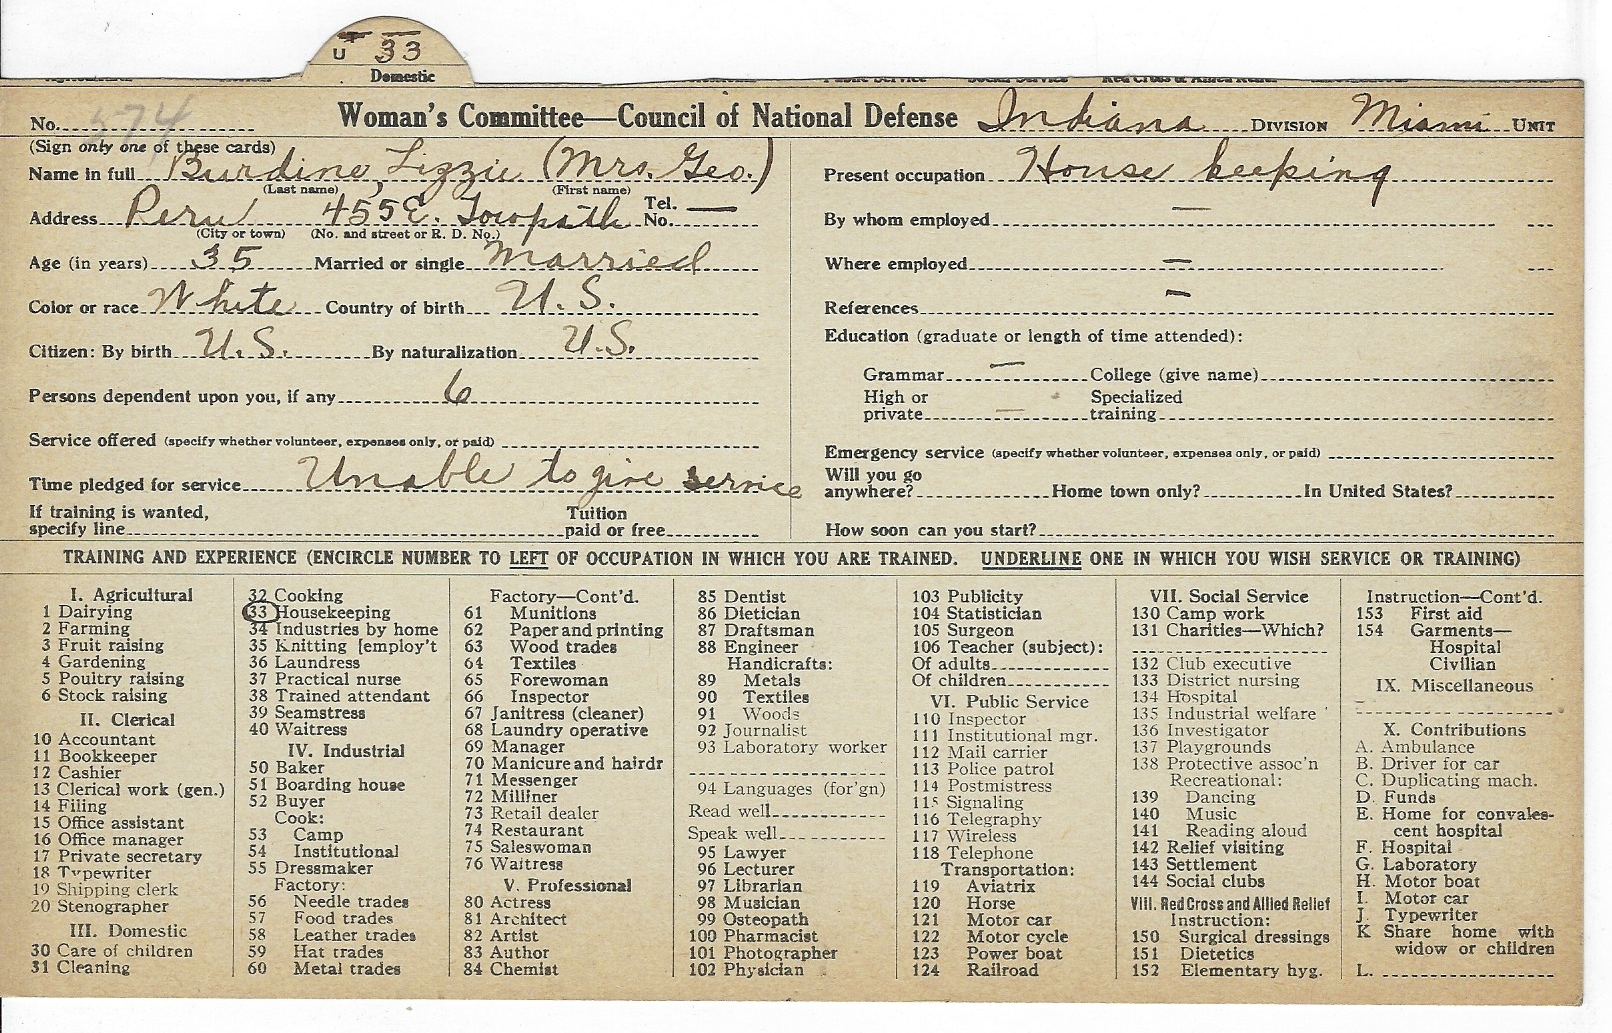 U 33
Domestic
No. 574 Woman's Committee—Council of National Defense Indiana DIVISION Miami UNIT
(Sign only one of these cards)
Name in full Burdine, Lizzie (Mrs. Geo.)
(Last name) (First name)
Address Peru 455 E. Towpath Tel. No. —
(City or town) (No. and street or R. D. No.)
Age (in years) 35 Married or single Married
Color or race White Country of birth U.S.
Citizen: By birth U.S. By naturalization U.S.
Persons dependent upon you, if any 6
Service offered (specify whether volunteer, expenses only, or paid)
Time pledged for service Unable to give service
If training is wanted, specify line Tuition paid or free
Present occupation House keeping
By whom employed —
Where employed —
References —
Education (graduate or length of time attended):
Grammar — College (give name)
High or private — Specialized training
Emergency service (specify whether volunteer, expenses only, or paid)
Will you go anywhere? Home town only? In United States?
How soon can you start?
TRAINING AND EXPERIENCE (ENCIRCLE NUMBER TO LEFT OF OCCUPATION IN WHICH YOU ARE TRAINED. UNDERLINE ONE IN WHICH YOU WISH SERVICE OR TRAINING)
I. Agricultural
1 Dairying
2 Farming
3 Fruit raising
4 Gardening
5 Poultry raising
6 Stock raising
II. Clerical
10 Accountant
11 Bookkeeper
12 Cashier
13 Clerical work (gen.)
14 Filing
15 Office assistant
16 Office manager
17 Private secretary
18 Typewriter
19 Shipping clerk
20 Stenographer
III. Domestic
30 Care of children
31 Cleaning
32 Cooking
33 Housekeeping
34 Industries by home
35 Knitting [employ't
36 Laundress
37 Practical nurse
38 Trained attendant
39 Seamstress
40 Waitress
IV. Industrial
50 Baker
51 Boarding house
52 Buyer
Cook:
53 Camp
54 Institutional
55 Dressmaker
Factory:
56 Needle trades
57 Food trades
58 Leather trades
59 Hat trades
60 Metal trades
Factory—Cont'd.
61 Munitions
62 Paper and printing
63 Wood trades
64 Textiles
65 Forewoman
66 Inspector
67 Janitress (cleaner)
68 Laundry operative
69 Manager
70 Manicure and hairdr
71 Messenger
72 Milliner
73 Retail dealer
74 Restaurant
75 Saleswoman
76 Waitress
V. Professional
80 Actress
81 Architect
82 Artist
83 Author
84 Chemist
85 Dentist
86 Dietician
87 Draftsman
88 Engineer
Handicrafts:
89 Metals
90 Textiles
91 Woods
92 Journalist
93 Laboratory worker
94 Languages (for'gn)
Read well
Speak well
95 Lawyer
96 Lecturer
97 Librarian
98 Musician
99 Osteopath
100 Pharmacist
101 Photographer
102 Physician
103 Publicity
104 Statistician
105 Surgeon
106 Teacher (subject):
Of adults
Of children
VI. Public Service
110 Inspector
111 Institutional mgr.
112 Mail carrier
113 Police patrol
114 Postmistress
115 Signaling
116 Telegraphy
117 Wireless
118 Telephone
Transportation:
119 Aviatrix
120 Horse
121 Motor car
122 Motor cycle
123 Power boat
124 Railroad
VII. Social Service
130 Camp work
131 Charities—Which?
132 Club executive
133 District nursing
134 Hospital
135 Industrial welfare
136 Investigator
137 Playgrounds
138 Protective assoc'n
Recreational:
139 Dancing
140 Music
141 Reading aloud
142 Relief visiting
143 Settlement
144 Social clubs
VIII. Red Cross and Allied Relief
Instruction:
150 Surgical dressings
151 Dietetics
152 Elementary hyg.
Instruction—Cont'd.
153 First aid
154 Garments—
Hospital
Civilian
IX. Miscellaneous
X. Contributions
A. Ambulance
B. Driver for car
C. Duplicating mach.
D. Funds
E. Home for convales-
cent hospital
F. Hospital
G. Laboratory
H. Motor boat
I. Motor car
J. Typewriter
K Share home with
widow or children
L.